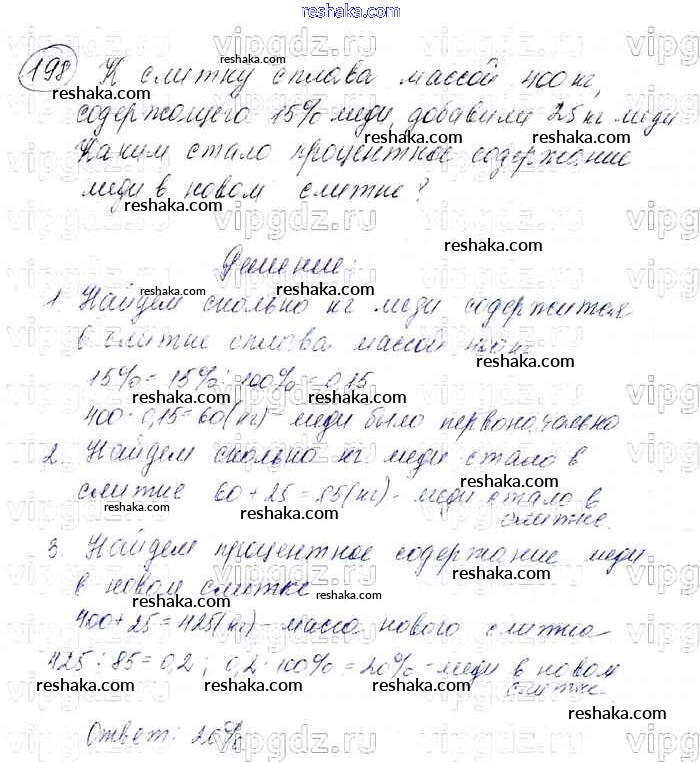 reshaka.com
198 К слитку сплава массой 400 кг,
содержащего 15% меди, добавили 25 кг меди
Каким стало процентное содержание
меди в новом слитке?
Решение:
1 Найдем сколько кг меди содержится
в слитке сплава массой 400 кг
15% = 15% : 100% = 0,15
400 · 0,15 = 60 (кг) - меди было первоначально
2. Найдем сколько кг меди стало в
слитке 60 + 25 = 85 (кг) - меди стало в
слитке.
3. Найдем процентное содержание меди
в новом слитке
400 + 25 = 425 (кг) - масса нового слитка
425 : 85 = 0,2 ; 0,2 · 100% = 20% - меди в новом
слитке
Ответ: 20%